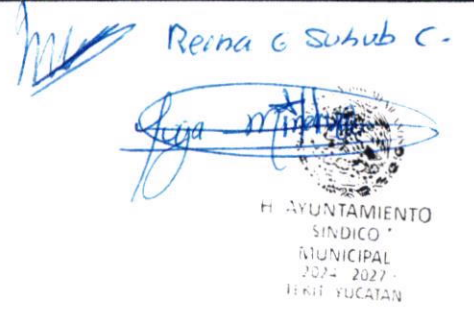 Reina G Suhub C.
H. AYUNTAMIENTO
SINDICO
MUNICIPAL
2024 - 2027
TEKIT YUCATAN